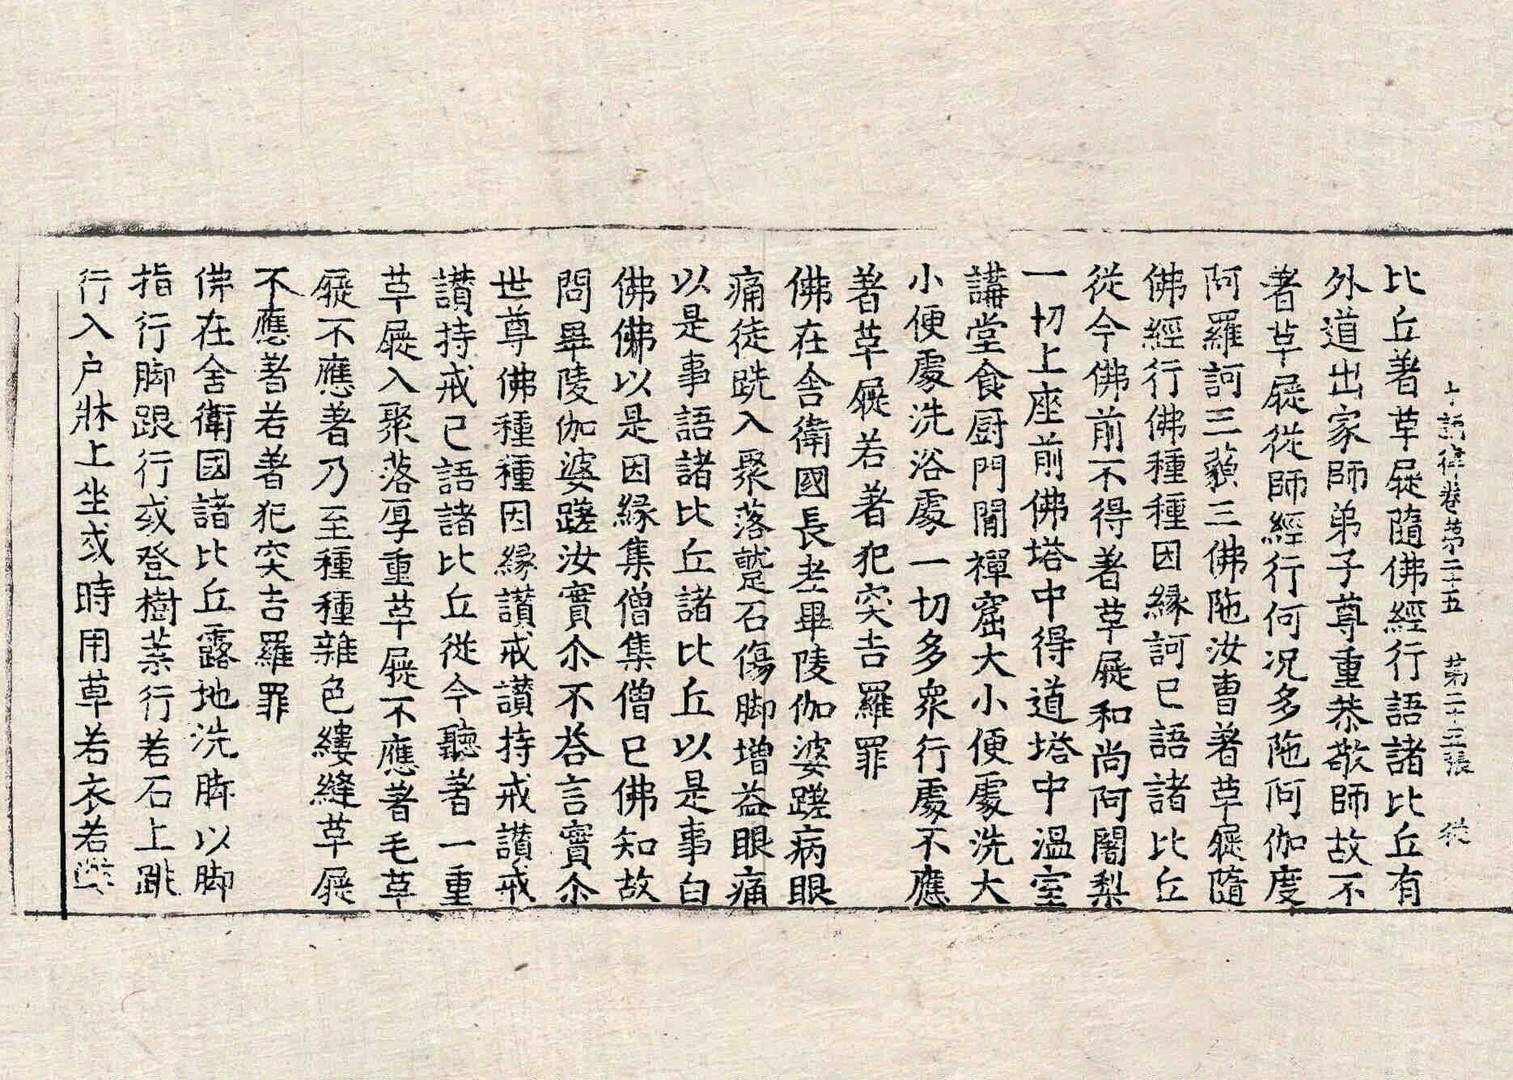 十誦律卷第二十五 第二十三張 從
比丘著草屣隨佛經行語諸比丘有
外道出家師弟子尊重恭敬師故不
著草屣從師經行何況多陁阿伽度
阿羅訶三藐三佛陁汝曹著草屣隨
佛經行佛種種因緣訶已語諸比丘
從今佛前不得著草屣和尚阿闍梨
一切上座前佛塔中得道塔中温室
講堂食厨門閒禪窟大小便處洗大
小便處洗浴處一切多衆行處不應
著草屣若著犯突吉羅罪
佛在舍衛國長老畢陵伽婆蹉病眼
痛徒跣入聚落蹴石傷脚增益眼痛
以是事語諸比丘諸比丘以是事白
佛佛以是因緣集僧集僧已佛知故
問畢陵伽婆蹉汝實尒不荅言實尒
世尊佛種種因緣讃戒讃持戒讃戒
讃持戒已語諸比丘從今聽著一重
草屣入聚落厚重草屣不應著毛草
屣不應著乃至種種雜色縷縫草屣
不應著若著犯突吉羅罪
佛在舍衛國諸比丘露地洗脚以脚
指行脚跟行或登樹葉行若石上跳
行入户牀上坐或時用草若衣若